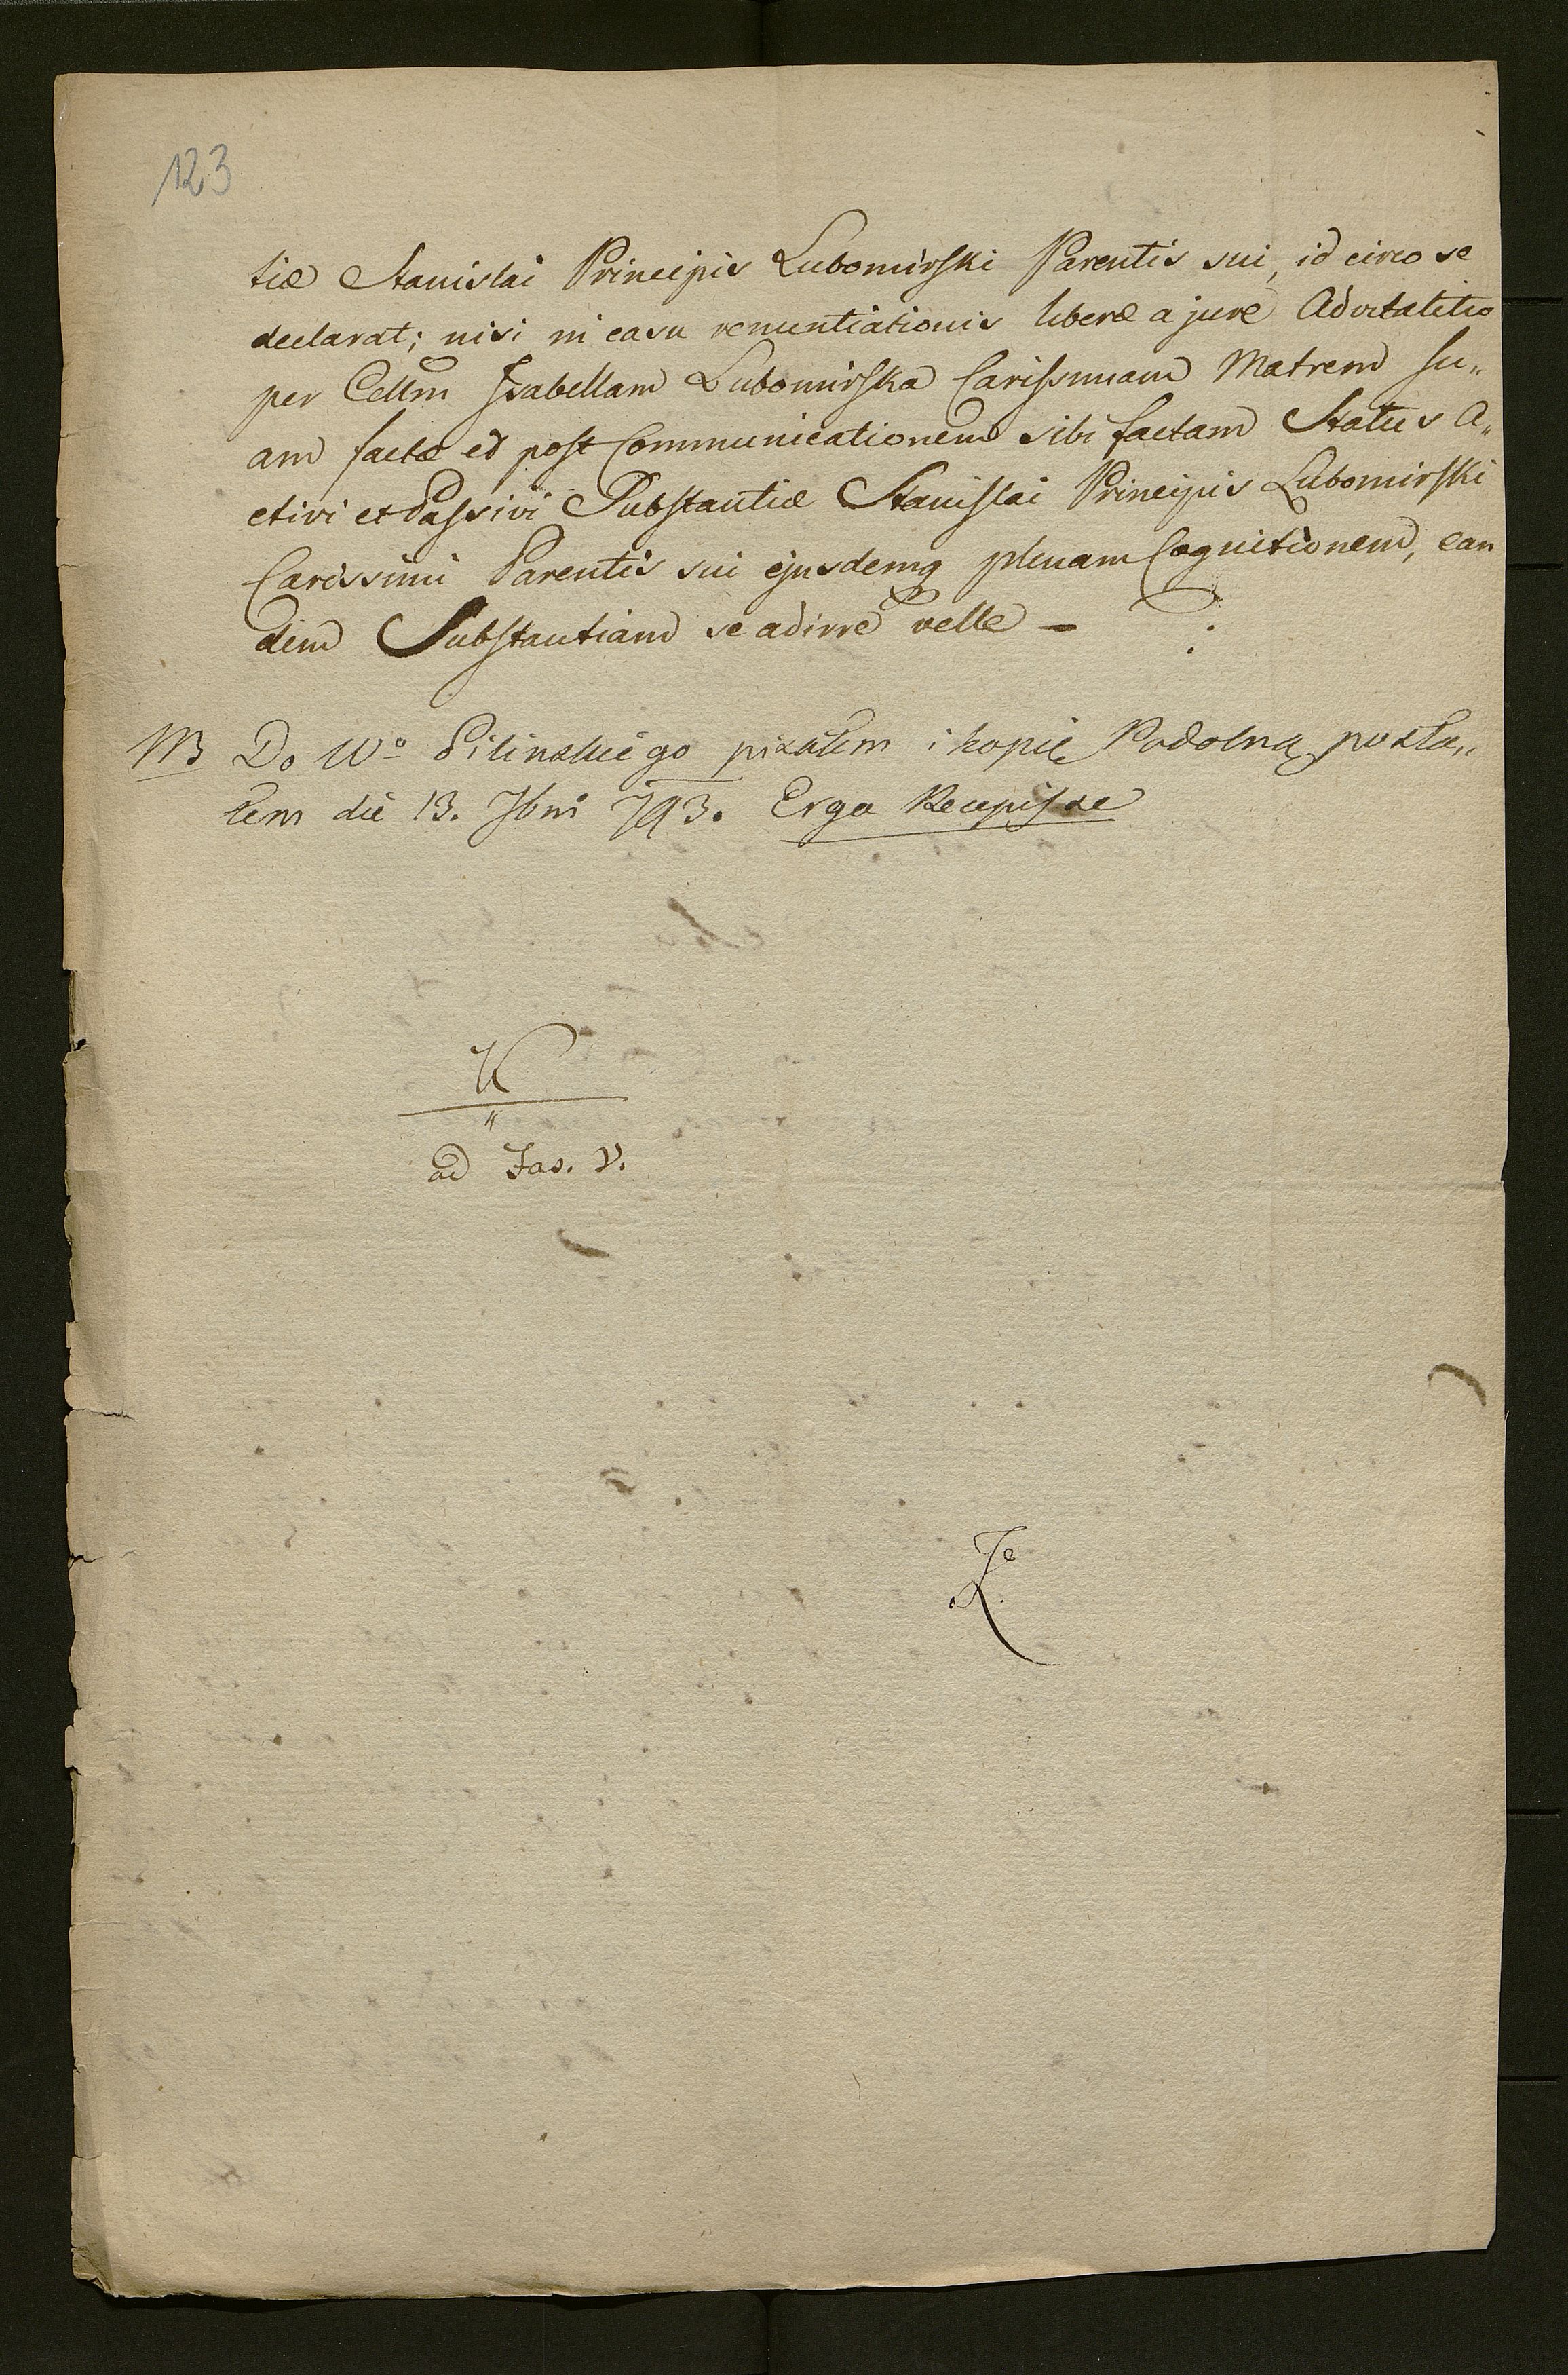 123
tiæ Stanislai Principis Lubomirski Parentis sui, id circo se
declarat; nisi in casu renuntiationis liberæ a jure Advitalitio
per Cellm Isabellam Lubomirska Carissimam Matrem Su„
am factæ et post Communicationem sibi factam Status A„
ctivi et Passivi Substantiæ Stanislai Principis Lubomirski
Carissimi Parentis sui ejusdemq plenam Cognitionem, ean
dem Substantiam se adirre velle –
NB Do Wo Pilinskiego pisałem i kopię Podolną posła„
łem die 13. 7bris 793. Erga Recepisse
K
ad Fas. V.